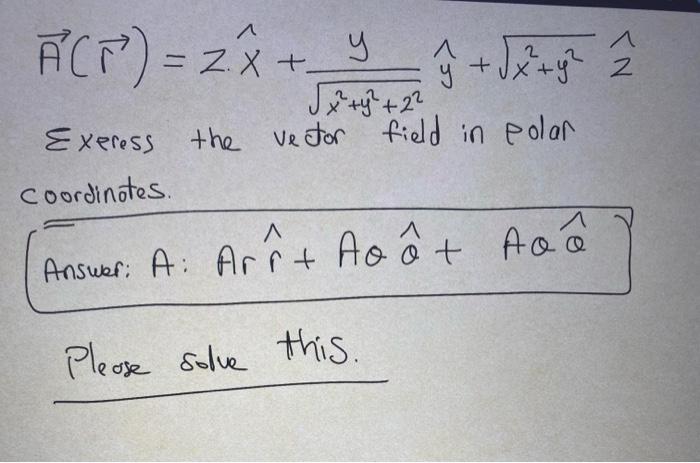 A⃗(r⃗) = z.x̂ + y/√x²+y²+2² ŷ + √x²+y² ẑ
Exeress the vector field in polar
coordinotes.
Answer: A: Ar r̂ + Aθ θ̂ + Aθ θ̂
Please solve this.